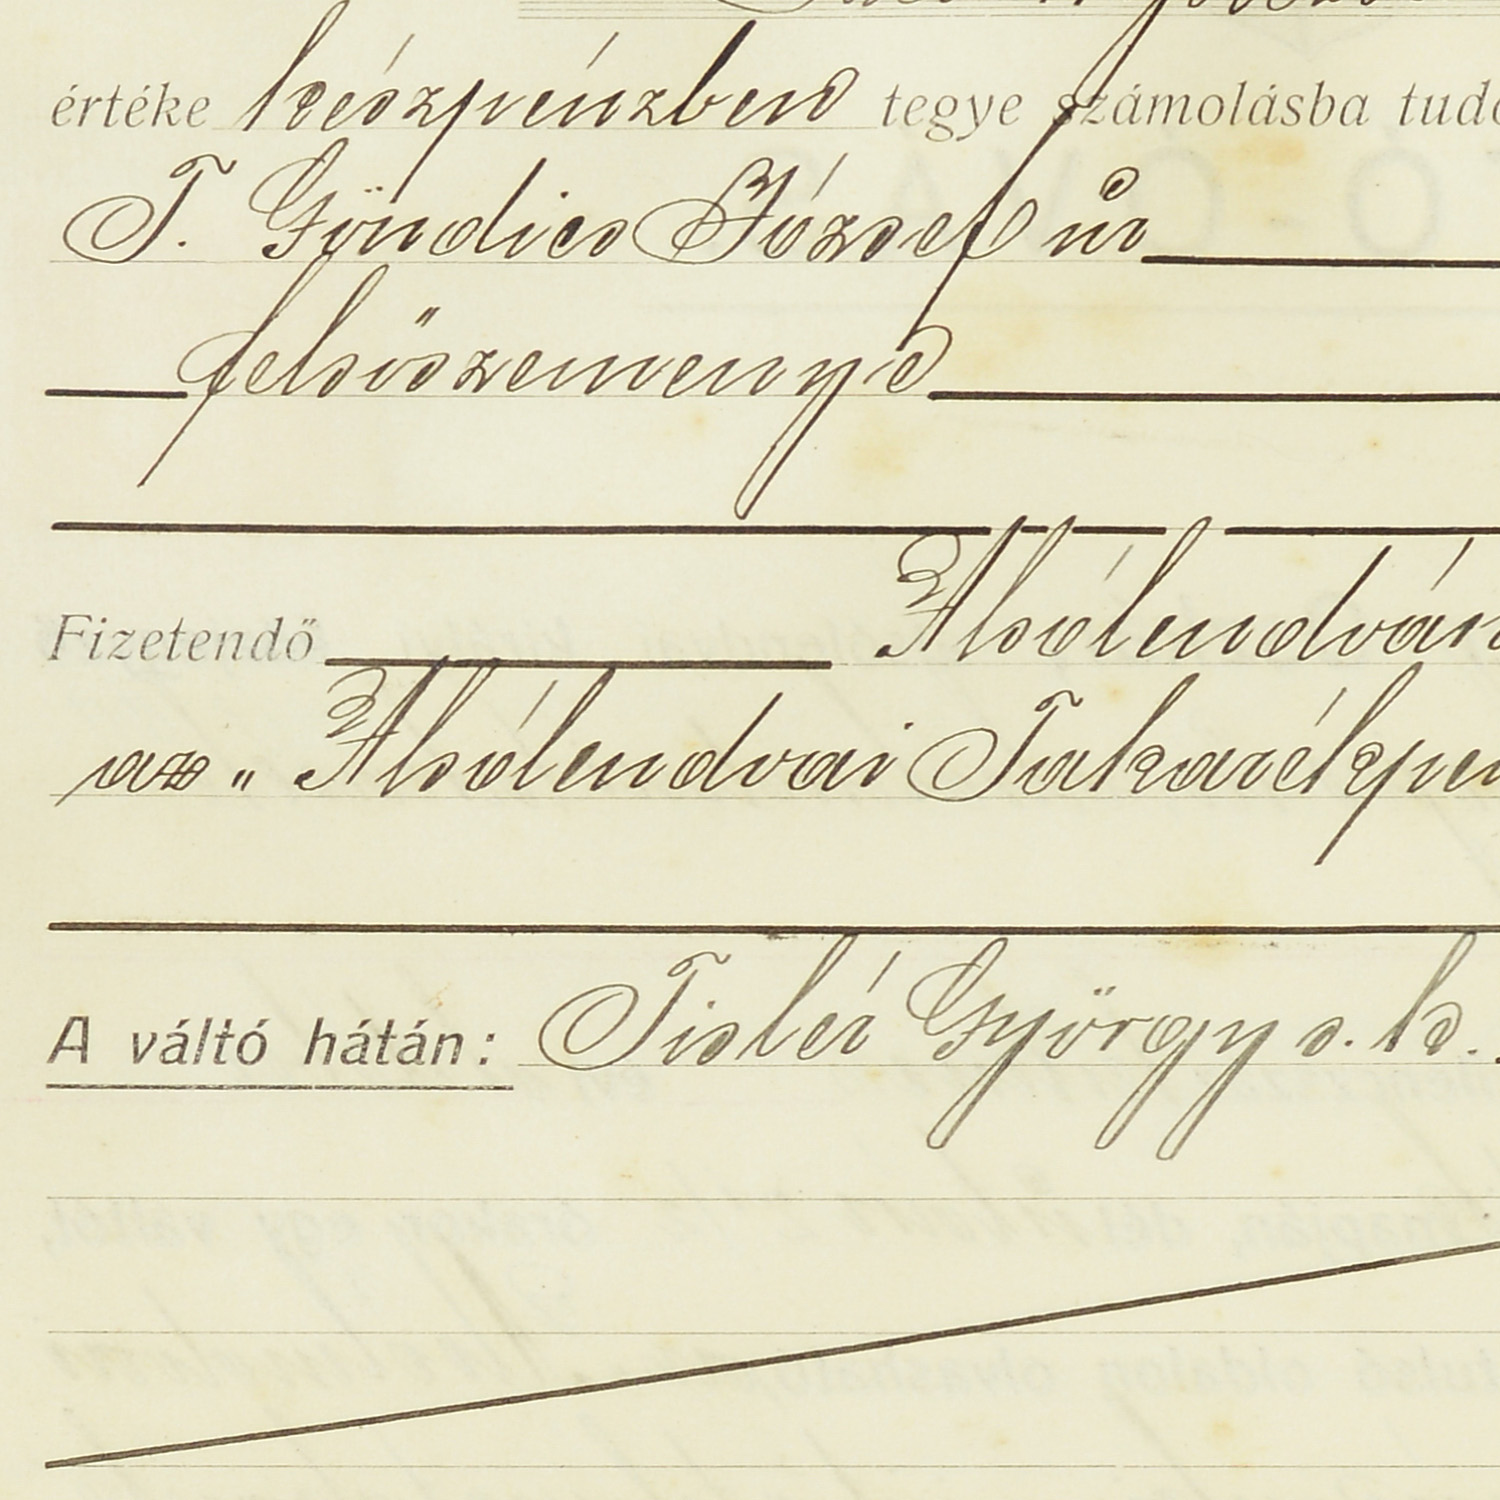 értéke készpénzben tegye számolásba
T. Göndics József úr
felsőszemenye
Fizetendő Alsólendván
az „Alsólendvai
A váltó hátán: Tislér György s. k.